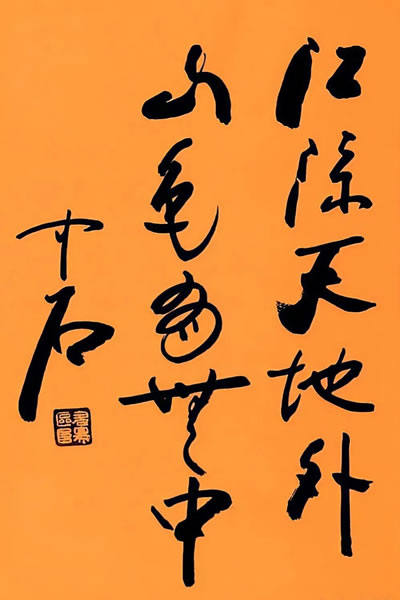 江流天地外
山色有無中
中石